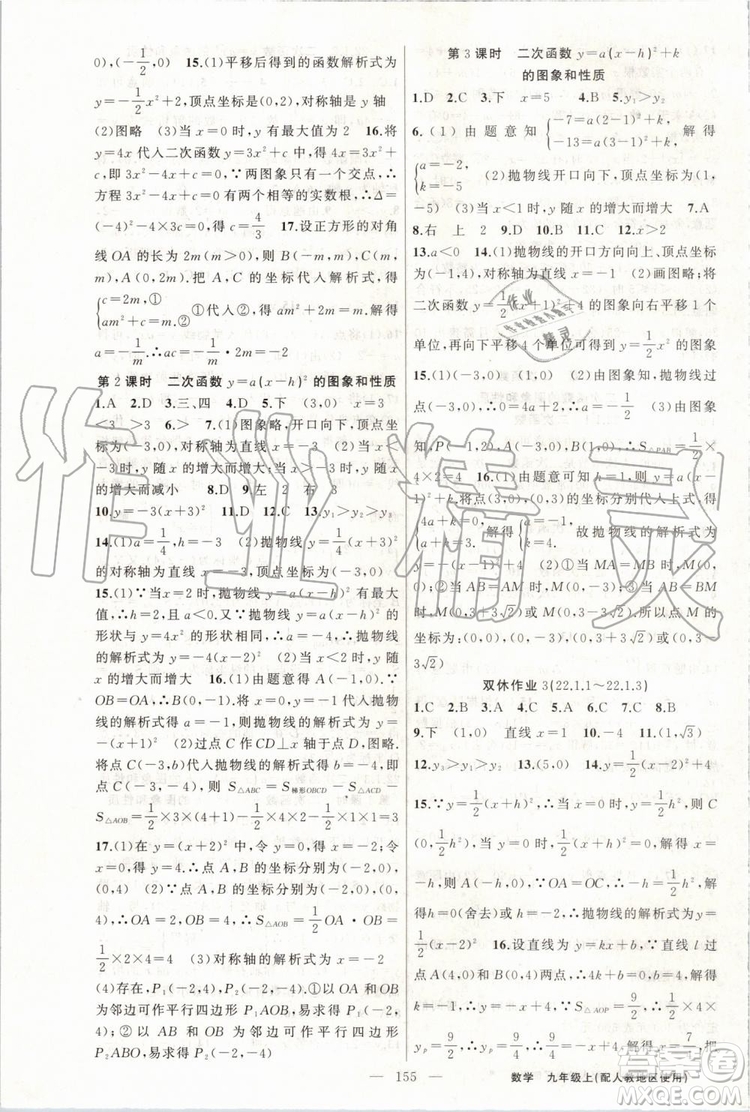 0),(-1/2,0) 15.(1)平移后得到的函数解析式为
y=-1/2x²+2,顶点坐标是(0,2),对称轴是 y 轴
(2)图略 (3)当 x=0 时,y 有最大值为 2 16.将
y=4x 代入二次函数 y=3x²+c,得 4x=3x²+
c,即 3x²-4x+c=0,∵两图象只有一个公共点,∴
方程 3x²-4x+c=0 有两个相等的实数根,∴Δ=
(-4)²-4×3c=0,c=4/3 17.设正方形的对角
线 OA 的长为 2m(m>0),则 B(-m,m),C(m,
m),A(0,2m).把 A,C 坐标代入解析式可得
{c=2m,① am²+c=m.② ①代入②得 am²+2m=m,解得
a=-1/m,∴ac=-1/m×2m=-2
第 2 课时 二次函数 y=a(x-h)² 的图象和性质
1.A 2.D 3.三、四 4.D 5.下 (3,0) x=3
<3 >3 6.> 7.(1)图象略,顶点坐标为
(-3,0),对称轴为直线 x=-3 (2)当 x<
-3 时,y 随 x 的增大而增大;当 x>-3 时,y 随 x
的增大而减小 8.D 9.左 2 右 3
10.y=-3(x+3)² 11.D 12.C 13.C
14.(1)a=1/4,h=-3 (2)抛物线 y=1/4(x+3)²
的对称轴为直线 x=-3,顶点坐标为(-3,0)
15.(1)∵当 x=2 时,y=a(x-h)² 有最大
值,∴h=2,又∵抛物线 y=a(x-h)² 的
形状与 y=4x² 的形状相同,∴a=-4,∴抛物
线的解析式为 y=-4(x-2)² (2)当 x<2 时,y 随
x 的增大而增大 16.(1)由题意得 A(-1,0),∵
OB=OA,∴B(0,-1).将 x=0,y=-1 代入抛物
线的解析式得 a=-1,则抛物线的解析式为 y=
-(x+1)² (2)过点 C 作CD⊥x 轴于点 D,图略.
将 C(-3,b)代入抛物线的解析式得 b=-4,即
点 C(-3,-4),则 S△ABC=S梯形OBCD-S△ACD-
S△AOB=1/2×3×(4+1)-1/2×2×4-1/2×1×1=3
17.(1)在 y=(x+2)² 中,令 y=0,得 x=-2;令 x=
0,得 y=4,∴点 A,B 的坐标分别为(-2,0),
(0,4) (2)∵点 A,B 的坐标分别为(-2,0),(0,
4),∴OA=2,OB=4,∴S△AOB=1/2OA·OB=
1/2×2×4=4 (3)对称轴的解析式为 x=-2
(4)存在,P₁(-2,4),P₂(-2,-4).①以 OA 和 OB
为邻边可作平行四边形 P₁AOB,易求得 P₁(-2,
4);②以 AB 和 OB 为邻边可作平行四边形
P₂ABO,易求得 P₂(-2,-4)
第 3 课时 二次函数 y=a(x-h)²+k
的图象和性质
1.D 2.C 3.下 x=5 4.B 5.y₁>y₂
6.(1)由题意知{-7=a(2-1)²+k, -13=a(-1-1)²+k, 解得
{a=-2, k=-5 (2)抛物线开口向下,顶点坐标为(1,
-5) (3)x<1 时,y 随 x 的增大而增大 7.A
8.右 上 2 9.D 10.B 11.C 12.C
13.a<0 14.(1)抛物线的开口方向向上、顶点坐
标为(-1,4)、对称轴为直线 x=-1 (2)画图略;将
二次函数 y=1/2(x+1)²+4 的图象向右平移 1 个
单位,再向下平移 4 个单位可得到 y=1/2x² 的图象
15.(1)(-3,0) (2)由图象可知,抛物线过点
(-1,2),∴0=4a+2,∴a=-1/2 (3)由图象
知,P(-1,2),A(-3,0),B(1,0),∴S△PAB=1/2×
4×2=4 16.(1)由题意可知:h=1,∴y=a(x-1)²
+k,将点(3,0),(0,3)的坐标分别代入上式,得
{4a+k=0, a+k=3, 解得{a=-1, k=4. 故抛物线的解析式为
y=-(x-1)²+4 (2)①当 MA=MB 时,M(0,
0);②当 AB=AM 时,M(0,-3);③当 AB=BM
时,M(0,3+3√2)或 M(0,3-3√2).所以点 M 的
坐标为(0,0),(0,-3),(0,3+3√2)或(0,3-
3√2)
双休作业 3(22.1.1~22.1.3)
1.C 2.B 3.D 4.A 5.C 6.C 7.C 8.B
9.下 (1,0) 直线 x=1 10.-4 11.(1,√3)
12.y₃>y₁>y₂ 13.y=1/2(x-2)² 14.0<a<3
15.∵y=1/2(x+h)²,∴当 x=0 时,y=1/2h²,则 C
(0,1/2h²).∵y=1/2(x+h)²=0,解得 x=-h,
∴A(-h,0),∵OA=OC,∴-h=1/2h²,解得 h=
0(舍去)或 h=-2,∴抛物线的解析式为 y=
1/2(x-2)² 16.设抛物线的解析式为 y=a(x-
2)²,∵过点(0,4),∴a=1,∴y=(x-2)²,易得
点 A(2,0),∵点 B(0,-2),∴OA=2,OB=
2,∴S△AOB=1/2×2×2=2,∴S△AOP=9/2=1/2×2×
yₚ,yₚ=9/2,∴9/2=(x-2)²,解得 x₁=2+
155
数学 九年级上(配人教地区使用)
作业精灵